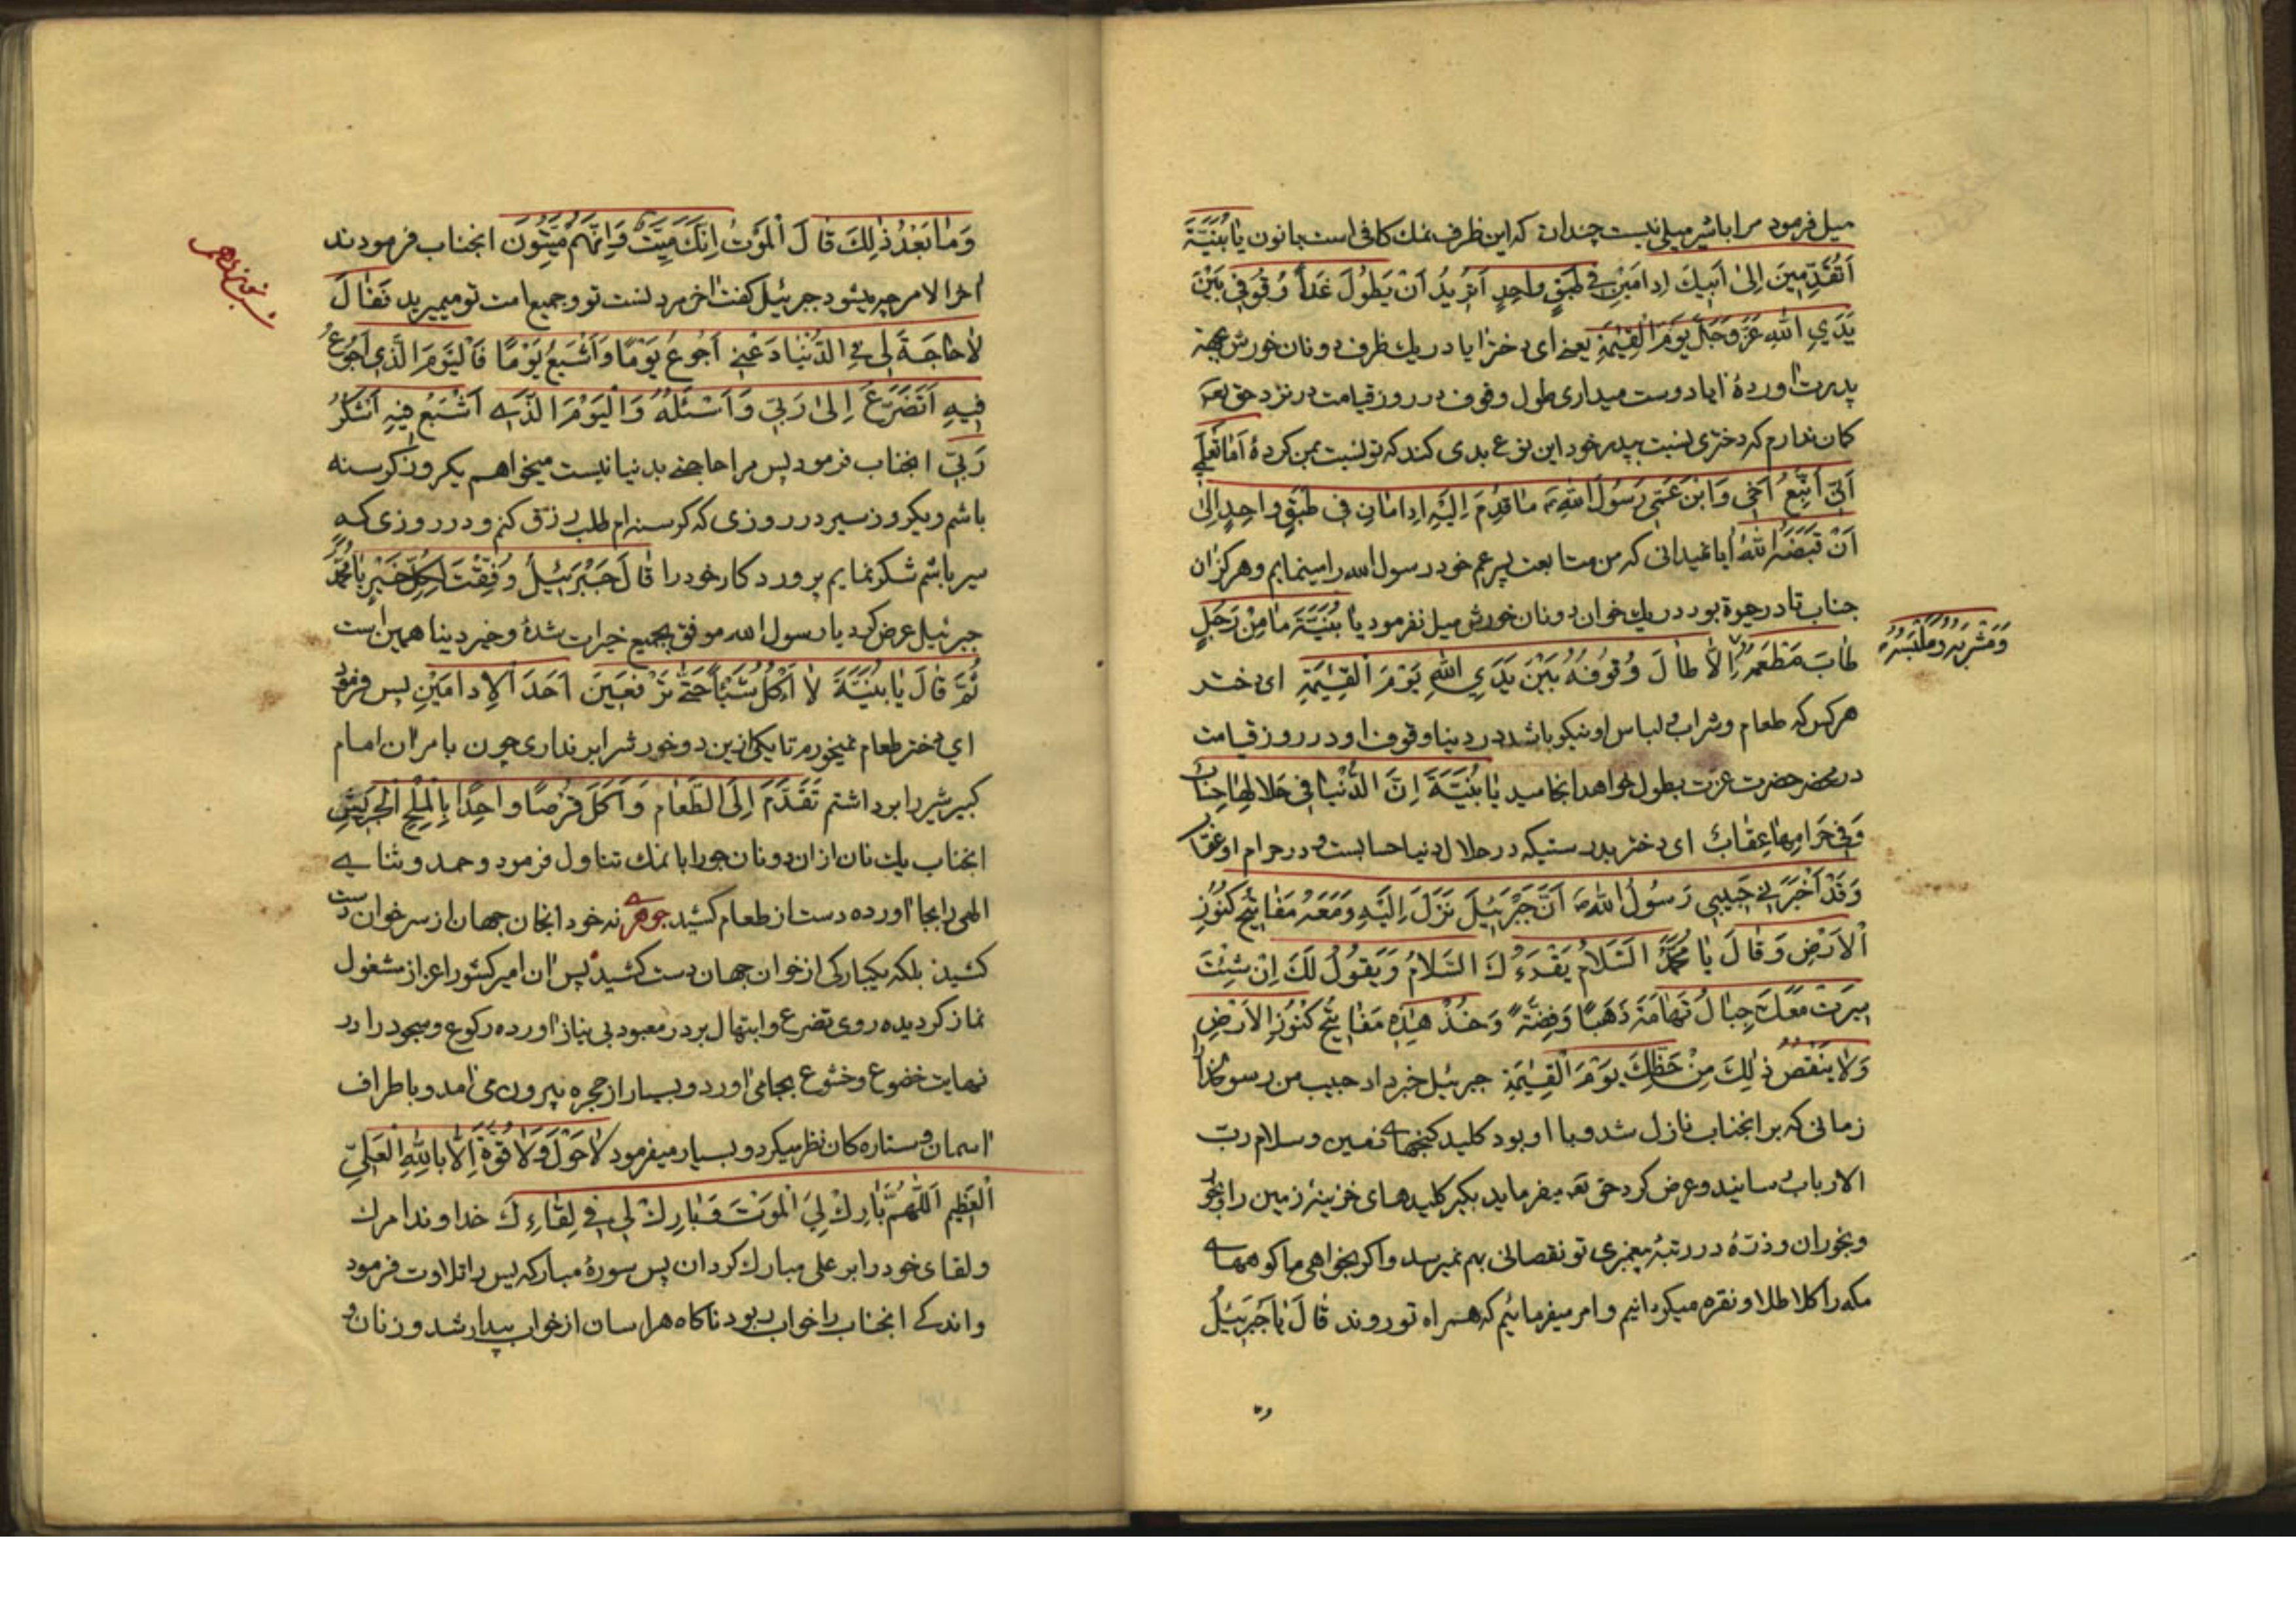 میل فرمود مرا باشیر میلی نیست چندان که این ظرف نمك کافی است جانون یٰا بُنَیَّةَ
اَتُقَدِّمینَ اِلیٰ اَبیكَ اِدامَیْنِ فی طَبَقٍ واحِدٍ اَتُریدُ اَنْ یَطُولَ غَداً وُقُوفی بَیْنَ
یَدَیِ اللّٰهِ عَزَّ وَجَلَّ یَوْمَ الْقِیٰمَةِ یعنے ای دختر ایا در یك ظرف دو نان خورش بجهة
پدرت اوردۀ ایا دوست میداری طول وقوف در روز قیامت در نزد حق تعم
کان ندارم که دختری نسبت بپدر خود این نوع بدی کند که تو نسبت بمن کردۀ اَمٰا تَعْلَمے
اَنّی اَتَّبِعُ اَخی وَ ابْنَ عَمّی رَسُولَ اللّٰهِ مٰا قُدِّمَ اِلَیْهِ اِدامٰانِ فی طَبَقٍ واحِدٍ اِلیٰ
اَنْ قَبَضَهُ اللّٰهُ ایا نمیدانی که من متابعت پسر عم خود رسول الله را مینمایم و هرکز ان
جناب تا در حیوة بود در یك خوان دو نان خورش میل نفرمود یٰا بُنَیَّةَ مٰا مِنْ رَجُلٍ
طٰابَ مَطْعَمُهُ اِلّاٰ طٰالَ وُقُوفُهُ بَیْنَ یَدَیِ اللّٰهِ یَوْمَ الْقِیٰمَةِ ای دختر
وَمَشْرَبُهُ وَمَلْبَسُهُ
هرکس که طعام و شراب و لباس او نیکو باشد در دنیا وقوف او در روز قیامت
در محضر حضرت عزت بطول خواهد انجامید یٰا بُنَیَّةَ اِنَّ الدُّنْیٰا فی حَلالِهٰا حِسٰاب
وَ فی حَرامِهٰا عِقٰابٌ ای دختر بدرستیکه در حلال دنیا حسابست و در حرام او عقاب
وَقَدْ اَخْبَرَنی حَبیبی رَسُولُ اللّٰهِ اَنَّ جَبْرَئیلَ نَزَلَ اِلَیْهِ وَمَعَهُ مَفٰاتیحُ کُنُوزِ
الْاَرْضِ وَقٰالَ یٰا مُحَمَّدُ السَّلاٰمُ یَقْرَءُكَ السَّلاٰمُ وَیَقُولُ لَكَ اِنْ شِئْتَ
سیرَتْ مَعَكَ جِبٰالُ تِهٰامَةَ ذَهَباً وَفِضَّةً وَخُذْ هٰذِهِ مَفٰاتیحُ کُنُوزِ الْاَرْضِ
وَلاٰ یَنْقُصُ ذٰلِكَ مِنْ حَظِّكَ یَوْمَ الْقِیٰمَةِ جبرئیل خبر داد حبیب من رسولخدا
زمانی که بر انجناب نازل شد و با او بود کلید کنجهاے زمین و سلام ربّ
الارباب رسانید و عرض کرد حق تعم میفرماید بکیر کلیدهای خزینۀ زمین را و بخور
و بخوران و ذرّۀ در رتبۀ پیغمبری تو نقصانی بهم نمیرسد و اکر بخواهی ما کوههاے
مکه را کلا طلا و نقره میکردانیم و امر میفرمائیم که همراه تو روند قٰالَ یٰا جَبْرَئیلُ
وَمٰا بَعْدُ ذٰلِكَ قٰالَ الْمَوْتُ اِنَّكَ مَیِّتٌ وَاِنَّهُمْ مَیِّتُونَ انجناب فرمودند
اخر الامر چه میشود جبرئیل کفت اخر مردنست تو و جمیع امت تو میمیرید فَقٰالَ
لاٰ حٰاجَةَ لی فی الدُّنْیٰا دَعْنی اَجُوعُ یَوْمًا وَاَشْبَعُ یَوْمًا فَالْیَوْمَ الَّذی اَجُوعُ
فیهِ اَتَضَرَّعُ اِلیٰ رَبّی وَاَسْئَلُهُ وَالْیَوْمَ الَّذی اَشْبَعُ فیهِ اَشْکُرُ
رَبّی انجناب فرمود پس مرا حاجتے بدنیا نیست میخواهم یکروز کرسنه
باشم و یکروز سیر در روزی که کرسنه ام طلب رزق کنم و در روزی که
سیر باشم شکر نمایم پروردکار خود را قٰالَ جَبْرَئیلُ وُفِّقْتَ لِکُلِّ خَیْرٍ یٰا مُحَمَّدُ
جبرئیل عرض کرد یا رسول الله موفق بجمیع خیرات شدۀ و خیر دینا همین است
ثُمَّ قٰالَ یٰا بُنَیَّةَ لاٰ اٰکُلُ شَیْئًا حَتّٰی تَرْفَعینَ اَحَدَ الْاِدامَیْنِ پس فرمود
ای دختر طعام نمیخورم تا یکی ازین دو خورش را برنداری چون بامر ان امام
کبیر شیر را برداشتم تَقَدَّمَ اِلَی الطَّعٰامِ وَاَکَلَ قُرْصًا واحِدًا بِالْمِلْحِ الْجَریشِ
انجناب یك نان از ان دو نان جو را با نمك تناول فرمود و حمد و ثناے
الهی را بجا اورده دست از طعام کشید جوهرے نه خود انجان جهان از سر خوان دست
کشید بلکه یکبارکی از خوان جهان دست کشید پس ان امیر کشور اعزاز مشغول
نماز کردیده روی تضرع و ابتهال بر در معبود بی نیاز اورده رکوع و سجود را در
نهایت خضوع و خشوع بجا می اورد و بسیار از حجره بیرون می امد و باطراف
اسمان و ستاره کان نظر میکرد و بسیار میفرمود لاٰ حَوْلَ وَلاٰ قُوَّةَ اِلّاٰ بِاللّٰهِ الْعَلِیِّ
الْعَظیمِ اَللّٰهُمَّ بٰارِكْ لِیَ الْمَوْتَ وَبٰارِكْ لی فی لِقٰاءِكَ خداوندا مرك
و لقای خود را بر علی مبارك کردان پس سورۀ مبارکه یس را تلاوت فرمود
و اندکے انجناب را خواب ربود ناکاه هراسان از خواب بیدار شد و زنان و